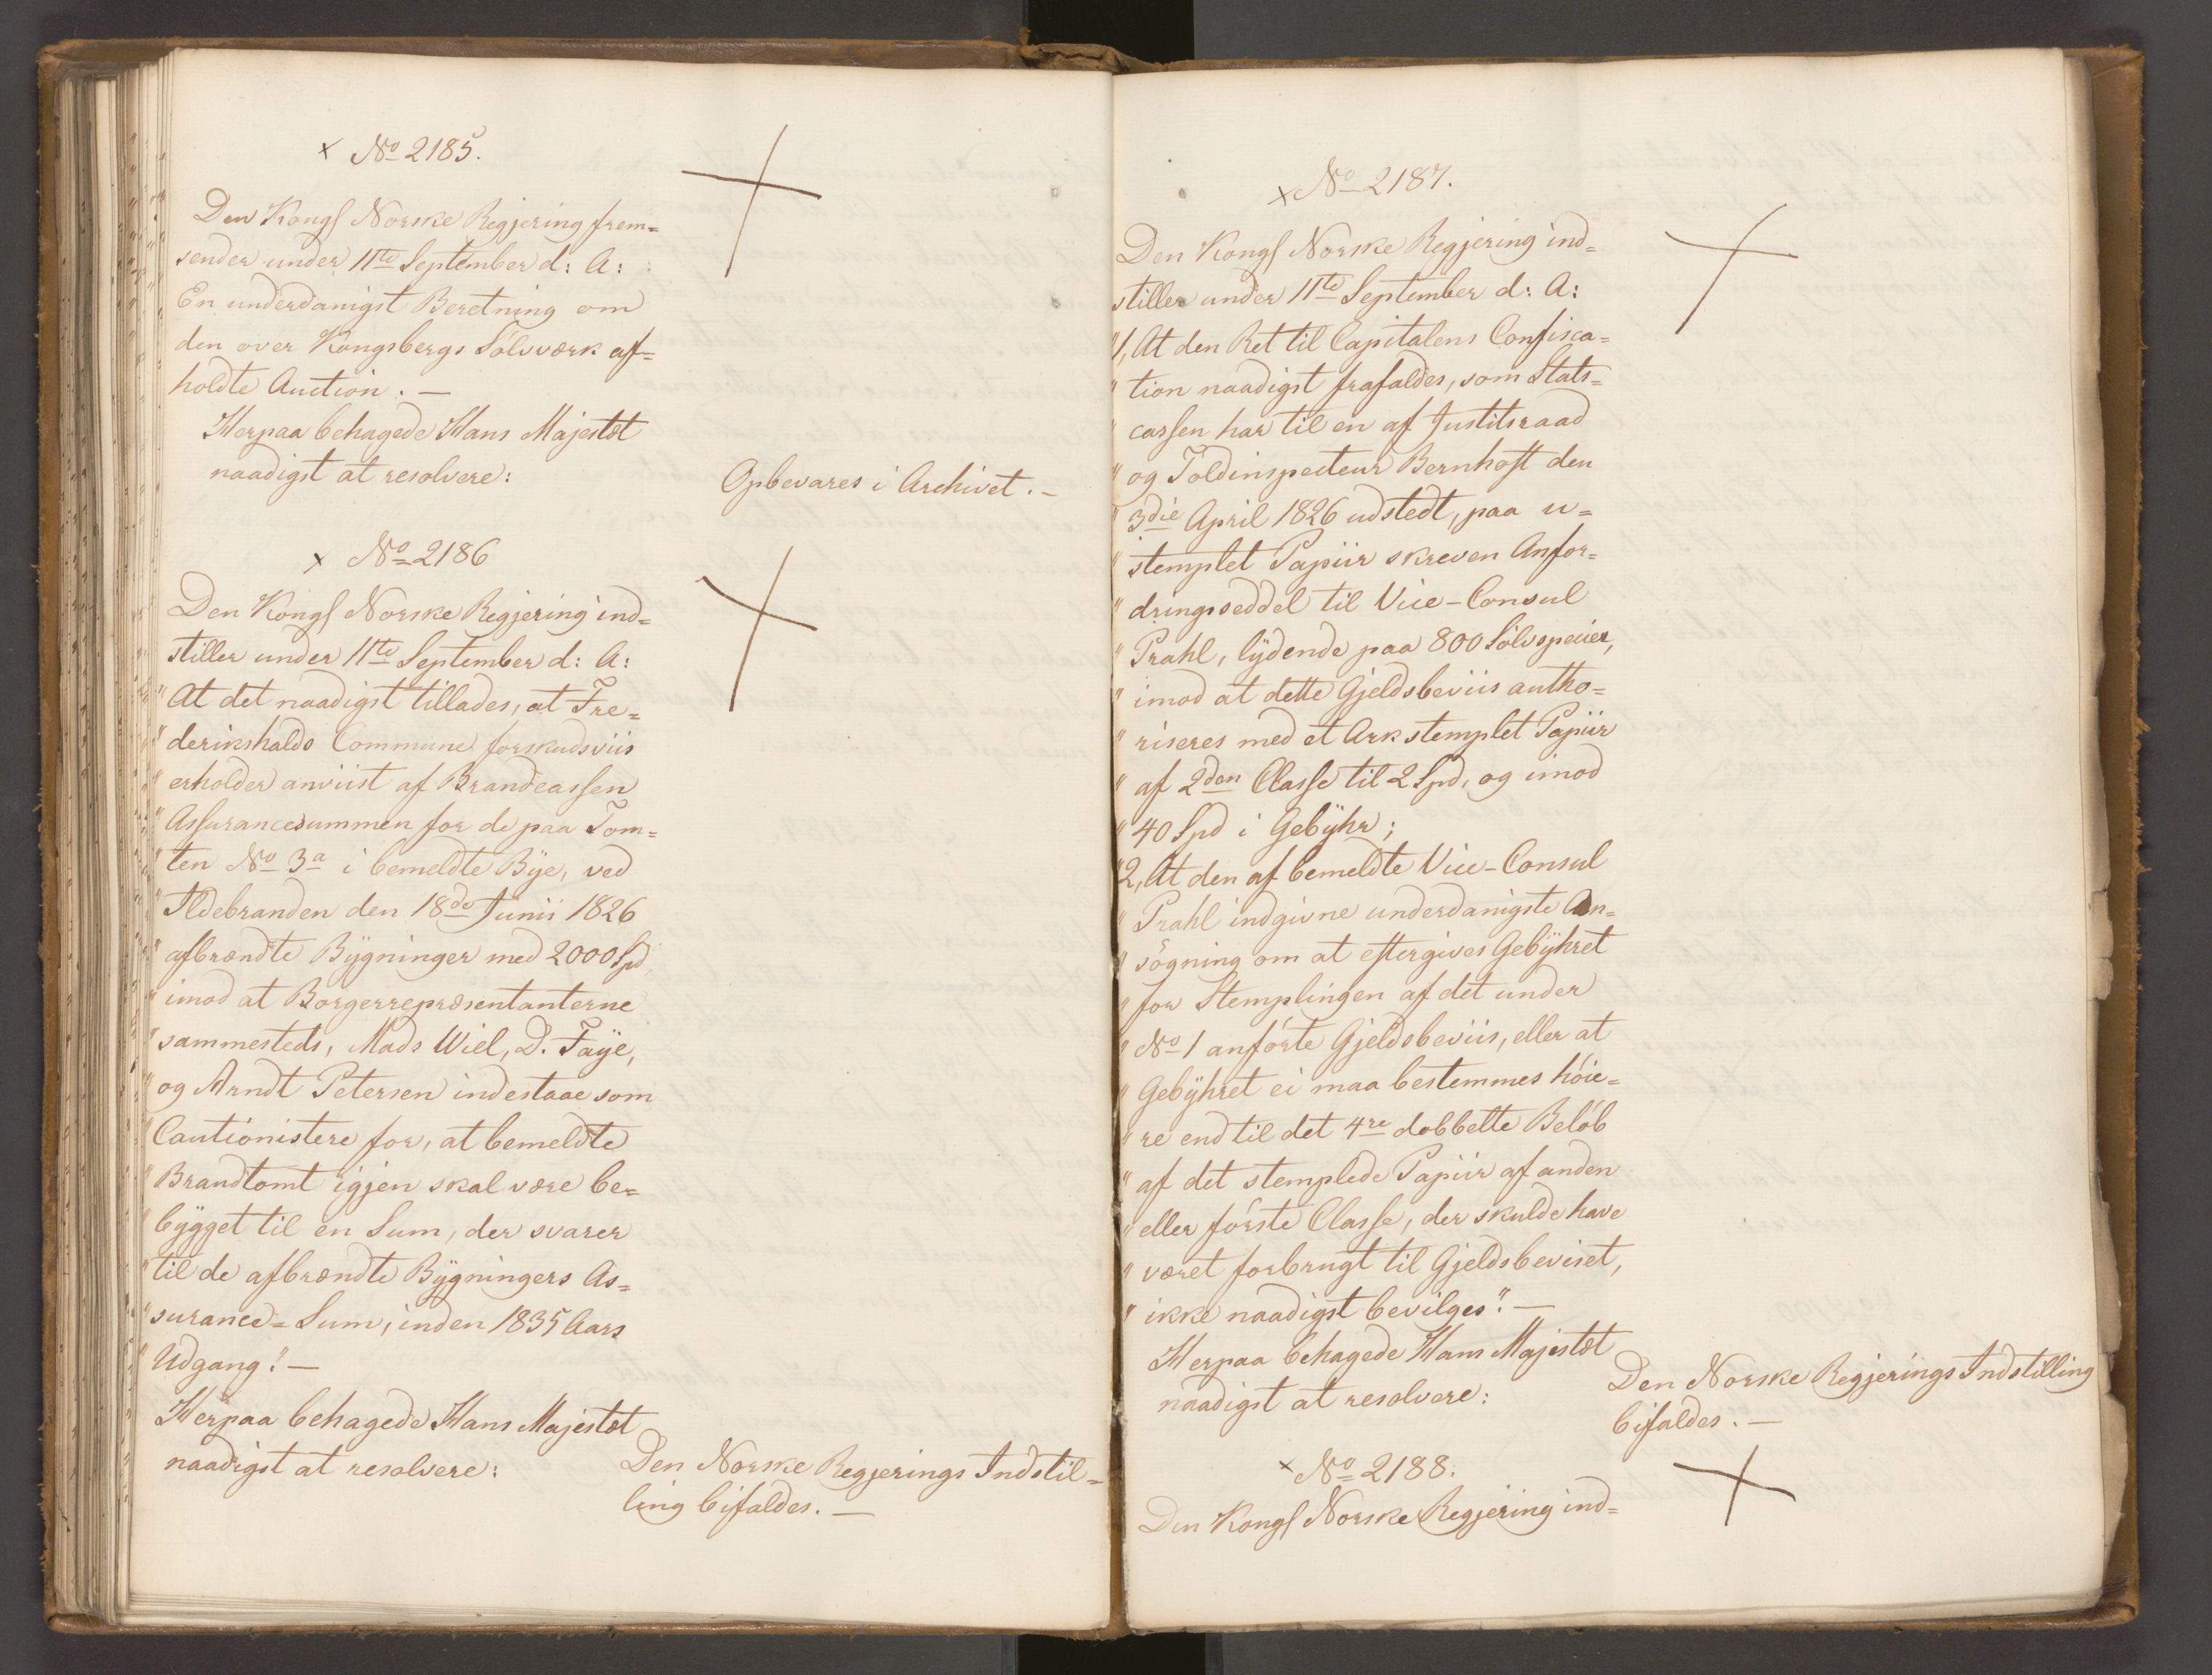 x No 2185.
Den Kongl Norske Regjering frem=
sender under 11te September d: A:
En underdanigst Beretning om
den over Kongsbergs Sölvværk af=
holdte Auction. —
Herpaa behagede Hans Majestæt
naadigst at resolvere:
Opbevares i Archivet. –
x No 2186
Den Kongl Norske Regjering ind=
stiller under 11te September d: A:
"At det naadigst tillades, at Fre=
"derikshalds Commune forskudsviis
"erholder anviist af Brandcassen
"Assurancesummen for de paa Tom=
"ten No 3a i bemeldte Bÿe, ved
"Ildebranden den 18de Junii 1826
"afbrændte Bÿgninger med 2000 Spd,
"imod at Borgerrepræsentanterne
"sammesteds, Mads Wiel, D. Faÿe,
"og Arndt Petersen indestaae som
"Cautionistere for, at bemeldte
"Brandtomt igjen skal være be=
"bÿgget til en Sum, der svarer
"til de afbrændte Bÿgningers As=
"surance=Sum, inden 1835 Aars
"Udgang". —
Herpaa behagede Hans Majestæt
naadigst at resolvere:
Den Norske Regjerings Indstil=
ling bifaldes. —
x No 2187.
Den Kongl Norske Regjering ind=
stiller under 11te September d: A:
"1, At den Ret til Capitalens Confisca=
"tion naadigst frafaldes, som Stats=
"cassen har til en af Justitsraad
"og Toldinspecteur Bernhoft den
"3die April 1826 udstedt, paa u=
"stemplet Papiir skreven Anfor=
"dringsseddel til Vice-Consul
"Prahl, lÿdende paa 800 Sölvspecier,
"imod at dette Gjeldsbeviis autho=
"riseres med et Ark stemplet Papiir
"af 2den Classe til 2 Spd, og imod
"40 Spd i Gebÿhr;
"2, At den af bemeldte Vice-Consul
"Prahl indgivne underdanigste An=
"sögning om at eftergives Gebÿhret
"for Stemplingen af det under
"No 1 anförte Gjeldsbeviis, eller at
"Gebÿhret ei maa bestemmes höie=
"re end til det 4re dobbelte Belöb
"af det stemplede Papiir af anden
"eller förste Classe, der skulde have
"været forbrugt til Gjeldsbeviset,
"ikke naadigst bevilges". —
Herpaa behagede Hans Majestæt
naadigst at resolvere:
Den Norske Regjerings Indstilling
bifaldes. —
x No 2188.
Den Kongl Norske Regjering ind=